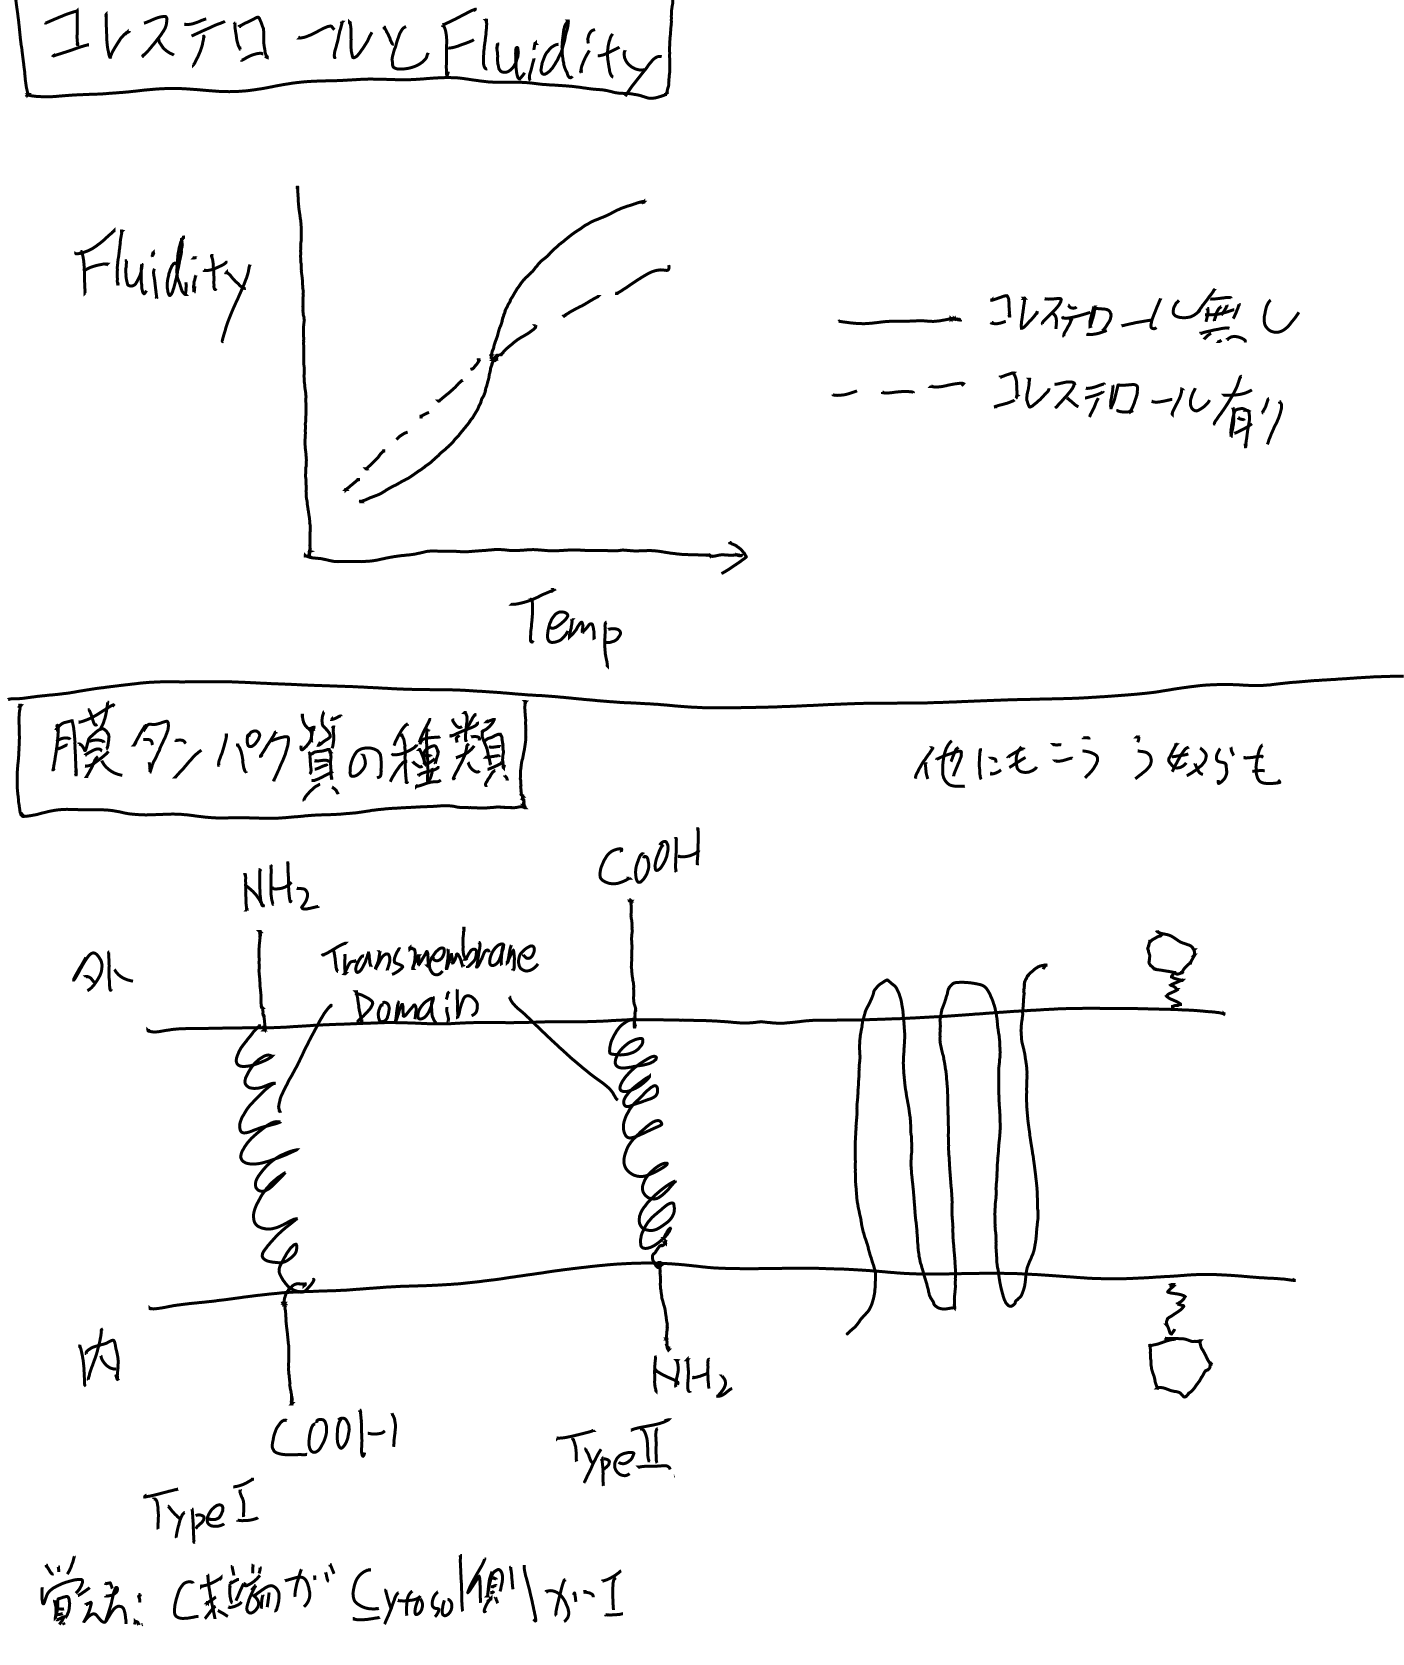 コレステロールとFluidity
Fluidity
コレステロール無し
コレステロール有り
Temp
膜タンパク質の種類
他にもこうう奴らも
NH2
COOH
外
Transmembrane
Domain
内
NH2
COOH
Type II
Type I
覚え方: C末端がCytosol側がI